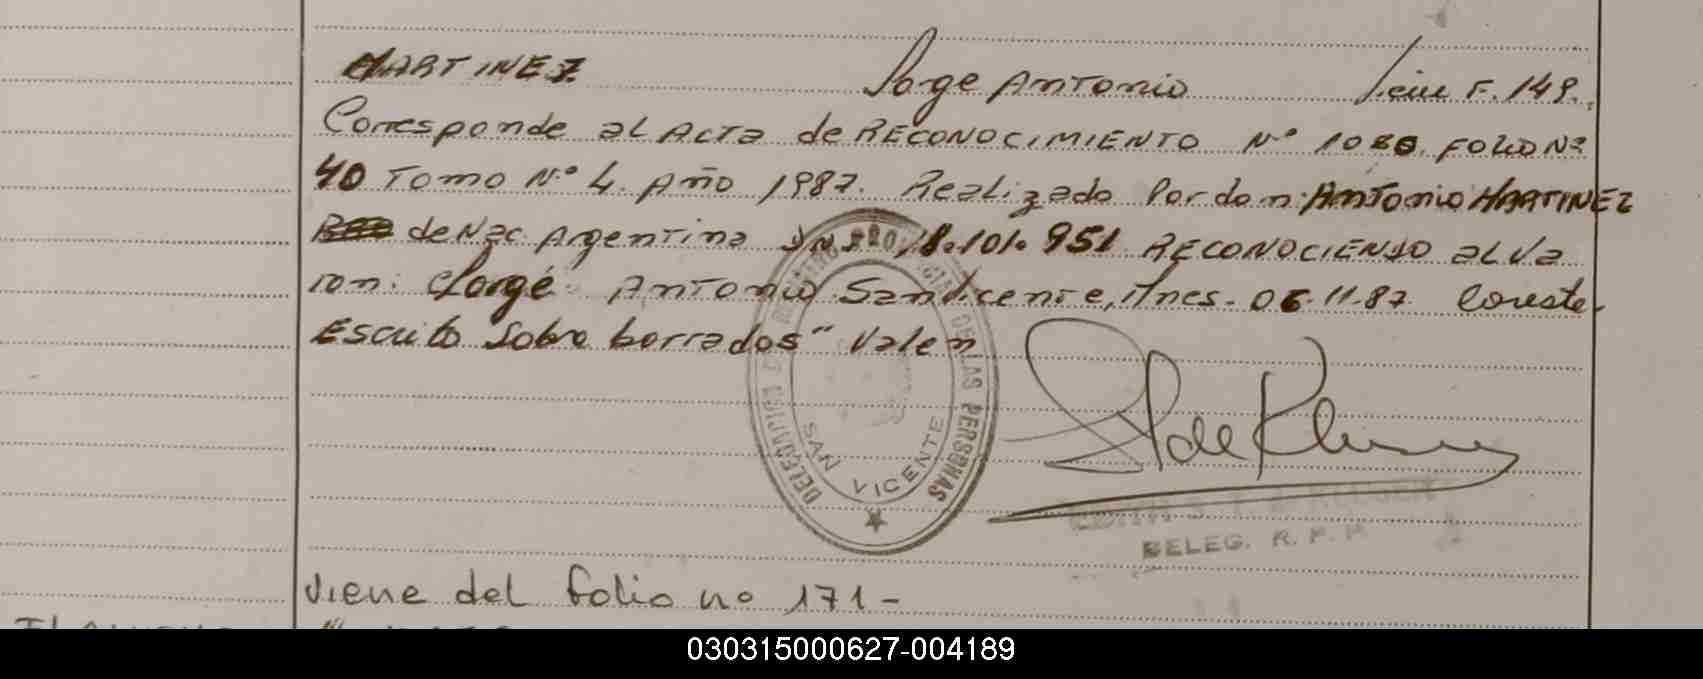 MARTINEZ Jorge Antonio Viene F. 149.
Corresponde al Acta de RECONOCIMIENTO Nº 1086. FOLIO Nº
40 Tomo Nº 4. Año 1987. Realizado Por don: ANTONIO MARTINEZ
de Nac Argentina 8.101.951 RECONOCIENDO al Va
ron: Jorge Antonio San Vicente, Mnes. 06.11.87
Escrito Sobre borrados" Valen
DELEGACION
DE LAS PERSONAS
SAN VICENTE
DELEG. R. P. P.
viene del folio nº 171-
030315000627-004189